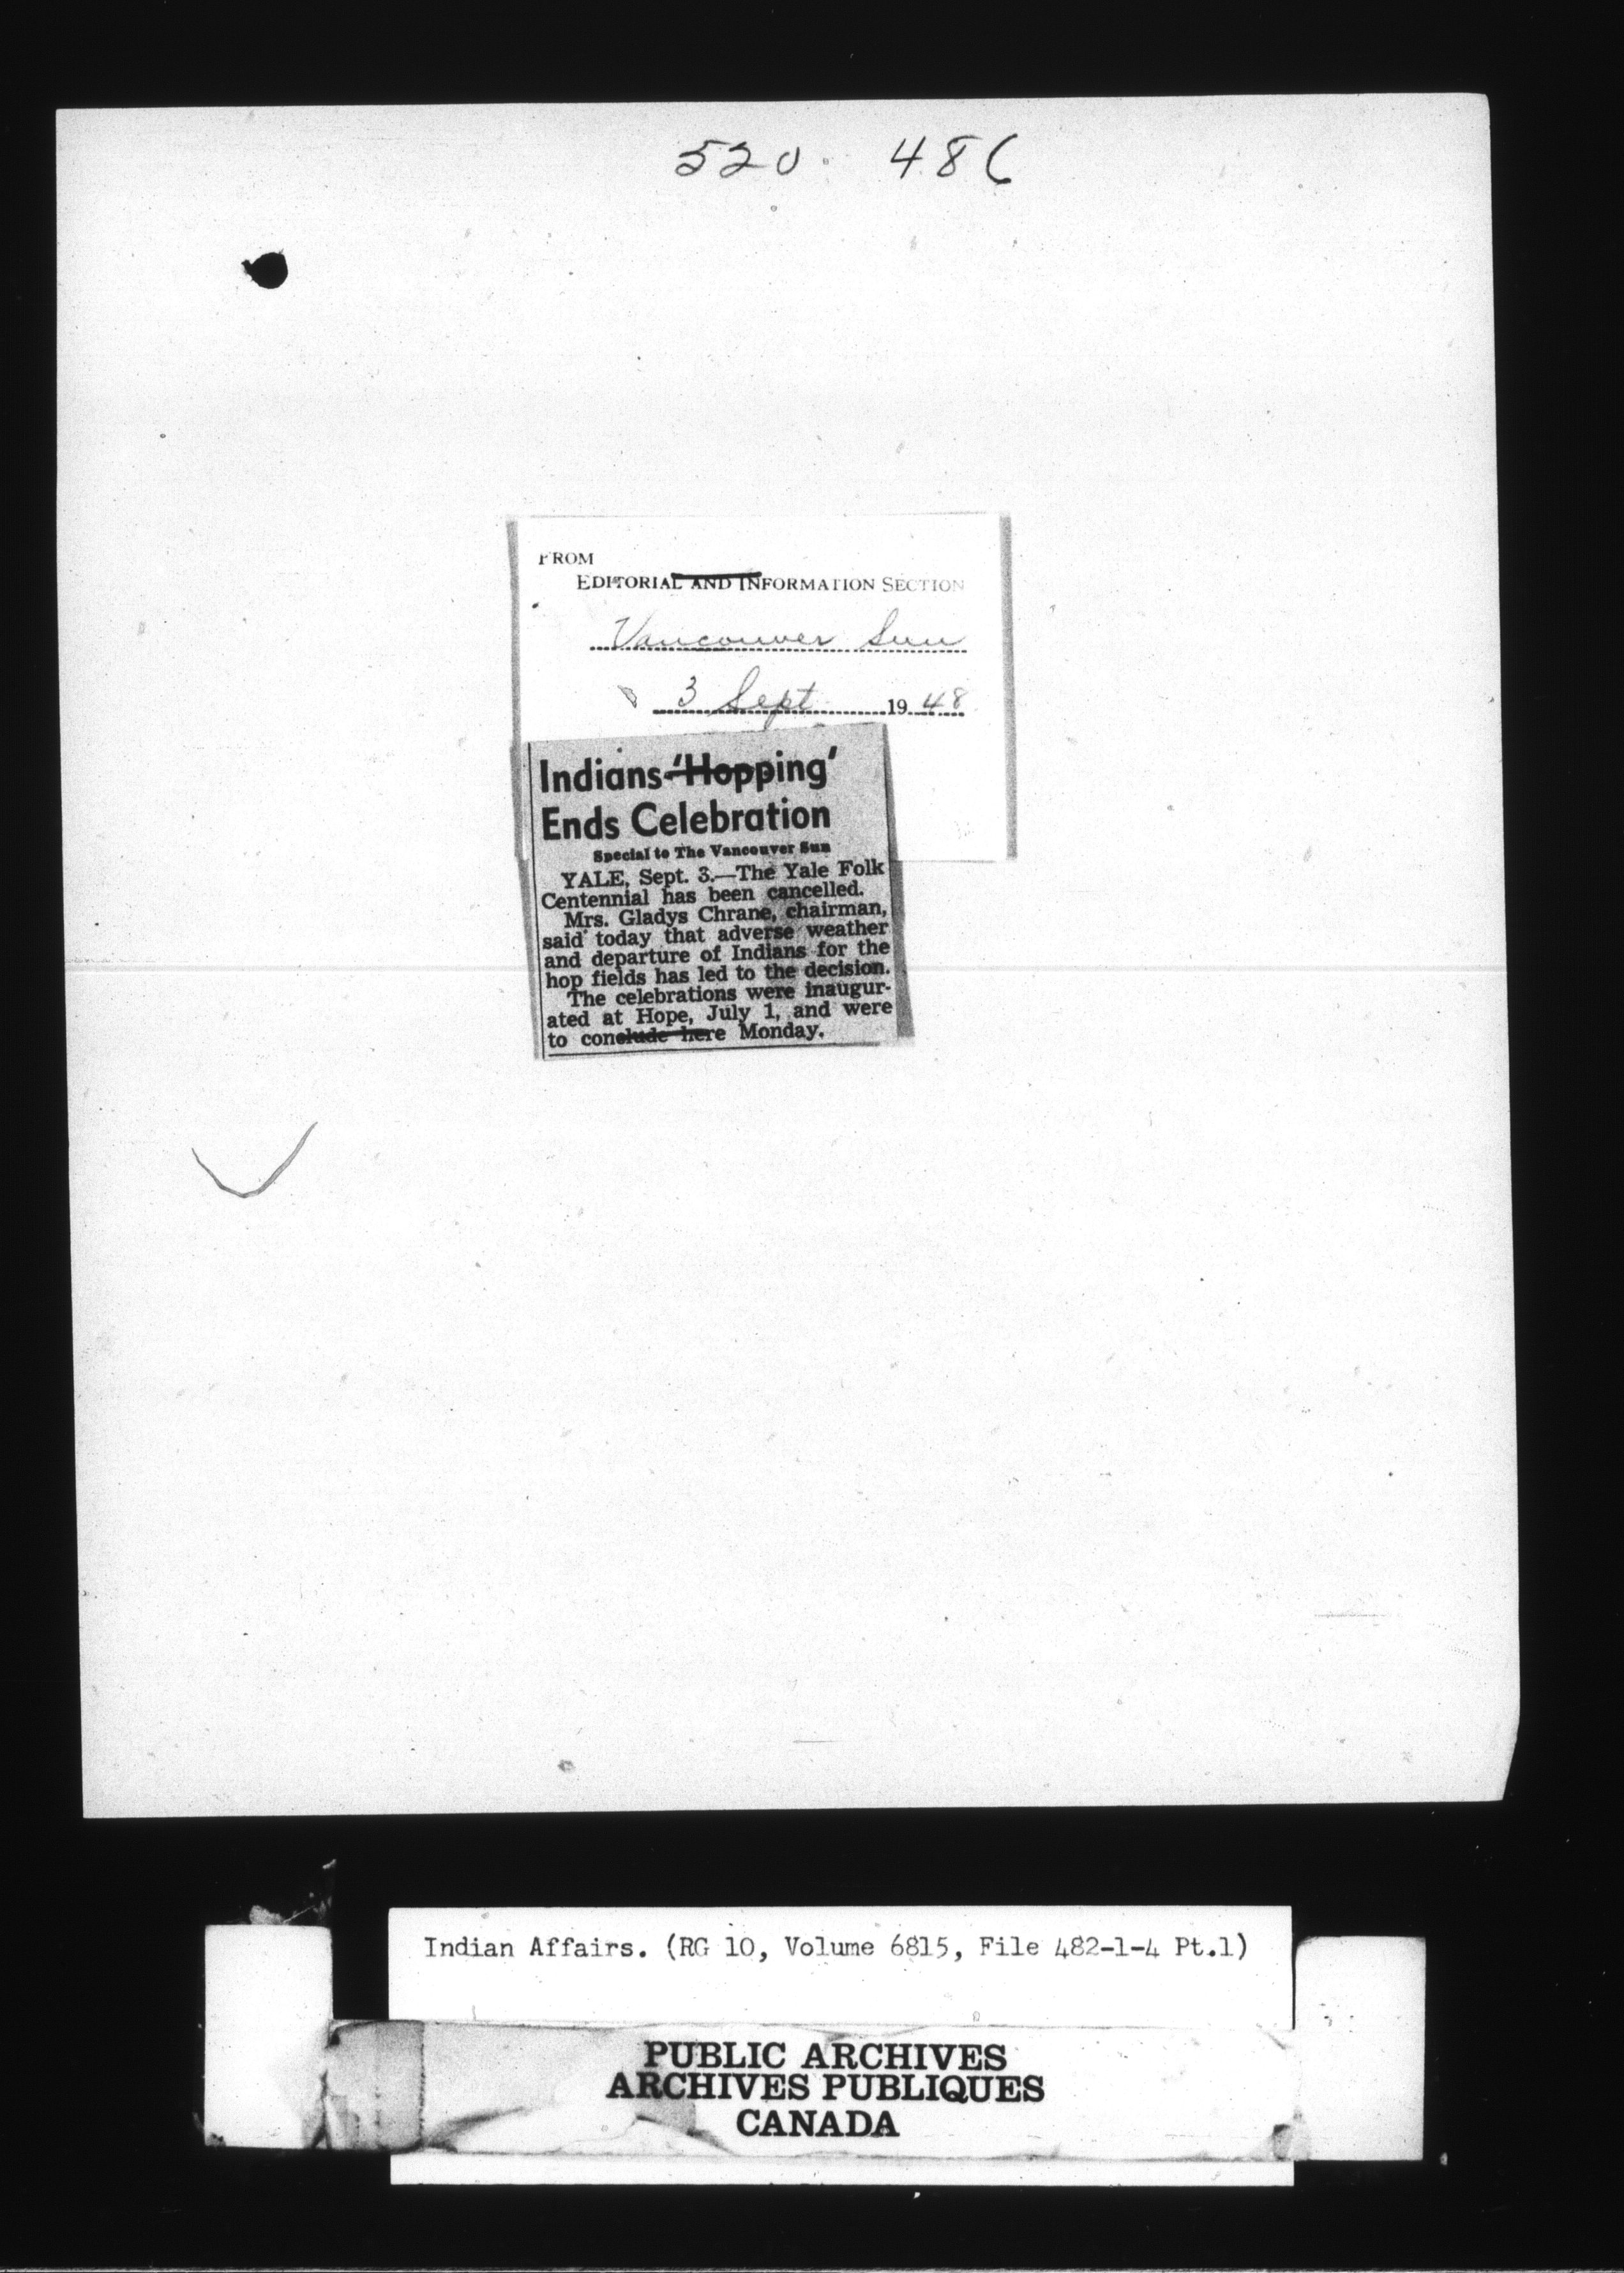 520. 486
FROM
EDITORIAL AND INFORMATION SECTION
Vancouver Sun
3 Sept 1948
Indians 'Hopping'
Ends Celebration
Special to The Vancouver Sun
YALE, Sept. 3.—The Yale Folk
Centennial has been cancelled.
Mrs. Gladys Chrane, chairman,
said today that adverse weather
and departure of Indians for the
hop fields has led to the decision.
The celebrations were inaugur-
ated at Hope, July 1, and were
to conclude here Monday.
Indian Affairs. (RG 10, Volume 6815, File 482-1-4 Pt.1)
PUBLIC ARCHIVES
ARCHIVES PUBLIQUES
CANADA